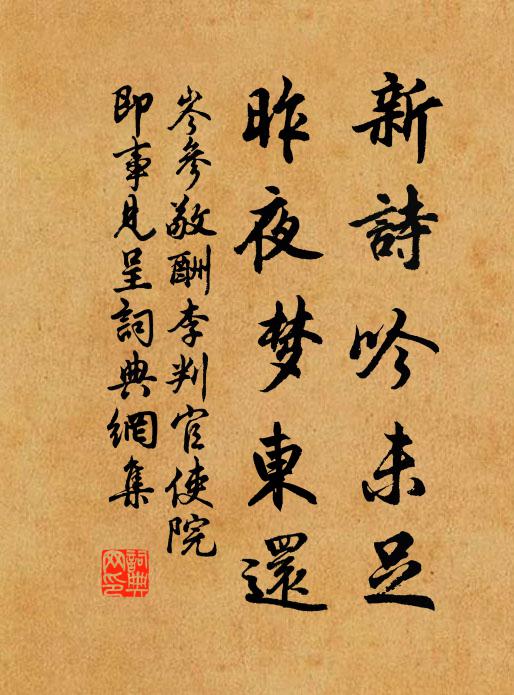 新詩吟未足
昨夜梦東還
岑參敬酬李判官使院
即事見呈詞典網集
詞典
网印